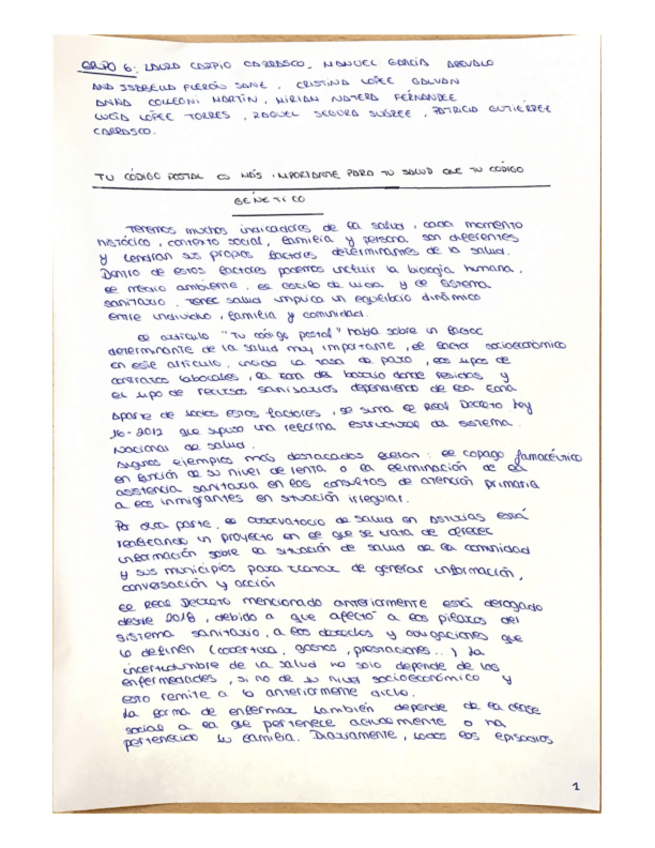 GRUPO 6: LAURA CARPIO CARRASCO, MANUEL GARCÍA AREVALO
ANA ISABELLA SANE, CRISTINA LÓPEZ GALVAN
ANNA COLLEONI MARTÍN, MIRIAM NATERA FERNÁNDEZ
LUCÍA LÓPEZ TORRES, RAQUEL SEGURA SUÁREZ, PATRICIA GUTIÉRREZ
CARRASCO.
TU CÓDIGO POSTAL ES MÁS IMPORTANTE PARA TU SALUD QUE TU CÓDIGO
GENÉTICO
Tenemos muchos indicadores de la salud, cada momento
histórico, contexto social, familia y persona son diferentes
y tendrán sus propios factores determinantes de la salud.
Dentro de estos factores podemos incluir la biología humana,
el medio ambiente, el estilo de vida y el sistema
sanitario. Tener salud implica un equilibrio dinámico
entre individuo, familia y comunidad.
El artículo "Tu código postal" habla sobre un factor
determinante de la salud muy importante, el factor socioeconómico
en este artículo, incide la tasa de paro, los tipos de
contratos laborales, la zona del barrio donde residas y
el tipo de recursos sanitarios dependiendo de esa zona
Aparte de todos estos factores, se suma el Real Decreto Ley
16-2012 que supuso una reforma estructural del sistema
Nacional de salud.
Algunos ejemplos más destacados fueron: el copago farmacéutico
en función de su nivel de renta o la eliminación de la
asistencia sanitaria en las consultas de atención primaria
a los inmigrantes en situación irregular.
Por otra parte, el observatorio de salud en Asturias está
realizando un proyecto en el que se trata de ofrecer
información sobre la situación de salud de la comunidad
y sus municipios para tratar de generar información,
conversación y acción
El Real Decreto mencionado anteriormente está derogado
desde 2018, debido a que afectó a los pilares del
sistema sanitario, a los derechos y obligaciones que
lo definen (cobertura, gastos, prestaciones...) La
incertidumbre de la salud no solo depende de las
enfermedades, si no de su nivel socioeconómico y
esto remite a lo anteriormente dicho.
La forma de enfermar también depende de la clase
social a la que pertenece actualmente o ha
pertenecido tu familia. Diariamente, todos los episodios
1